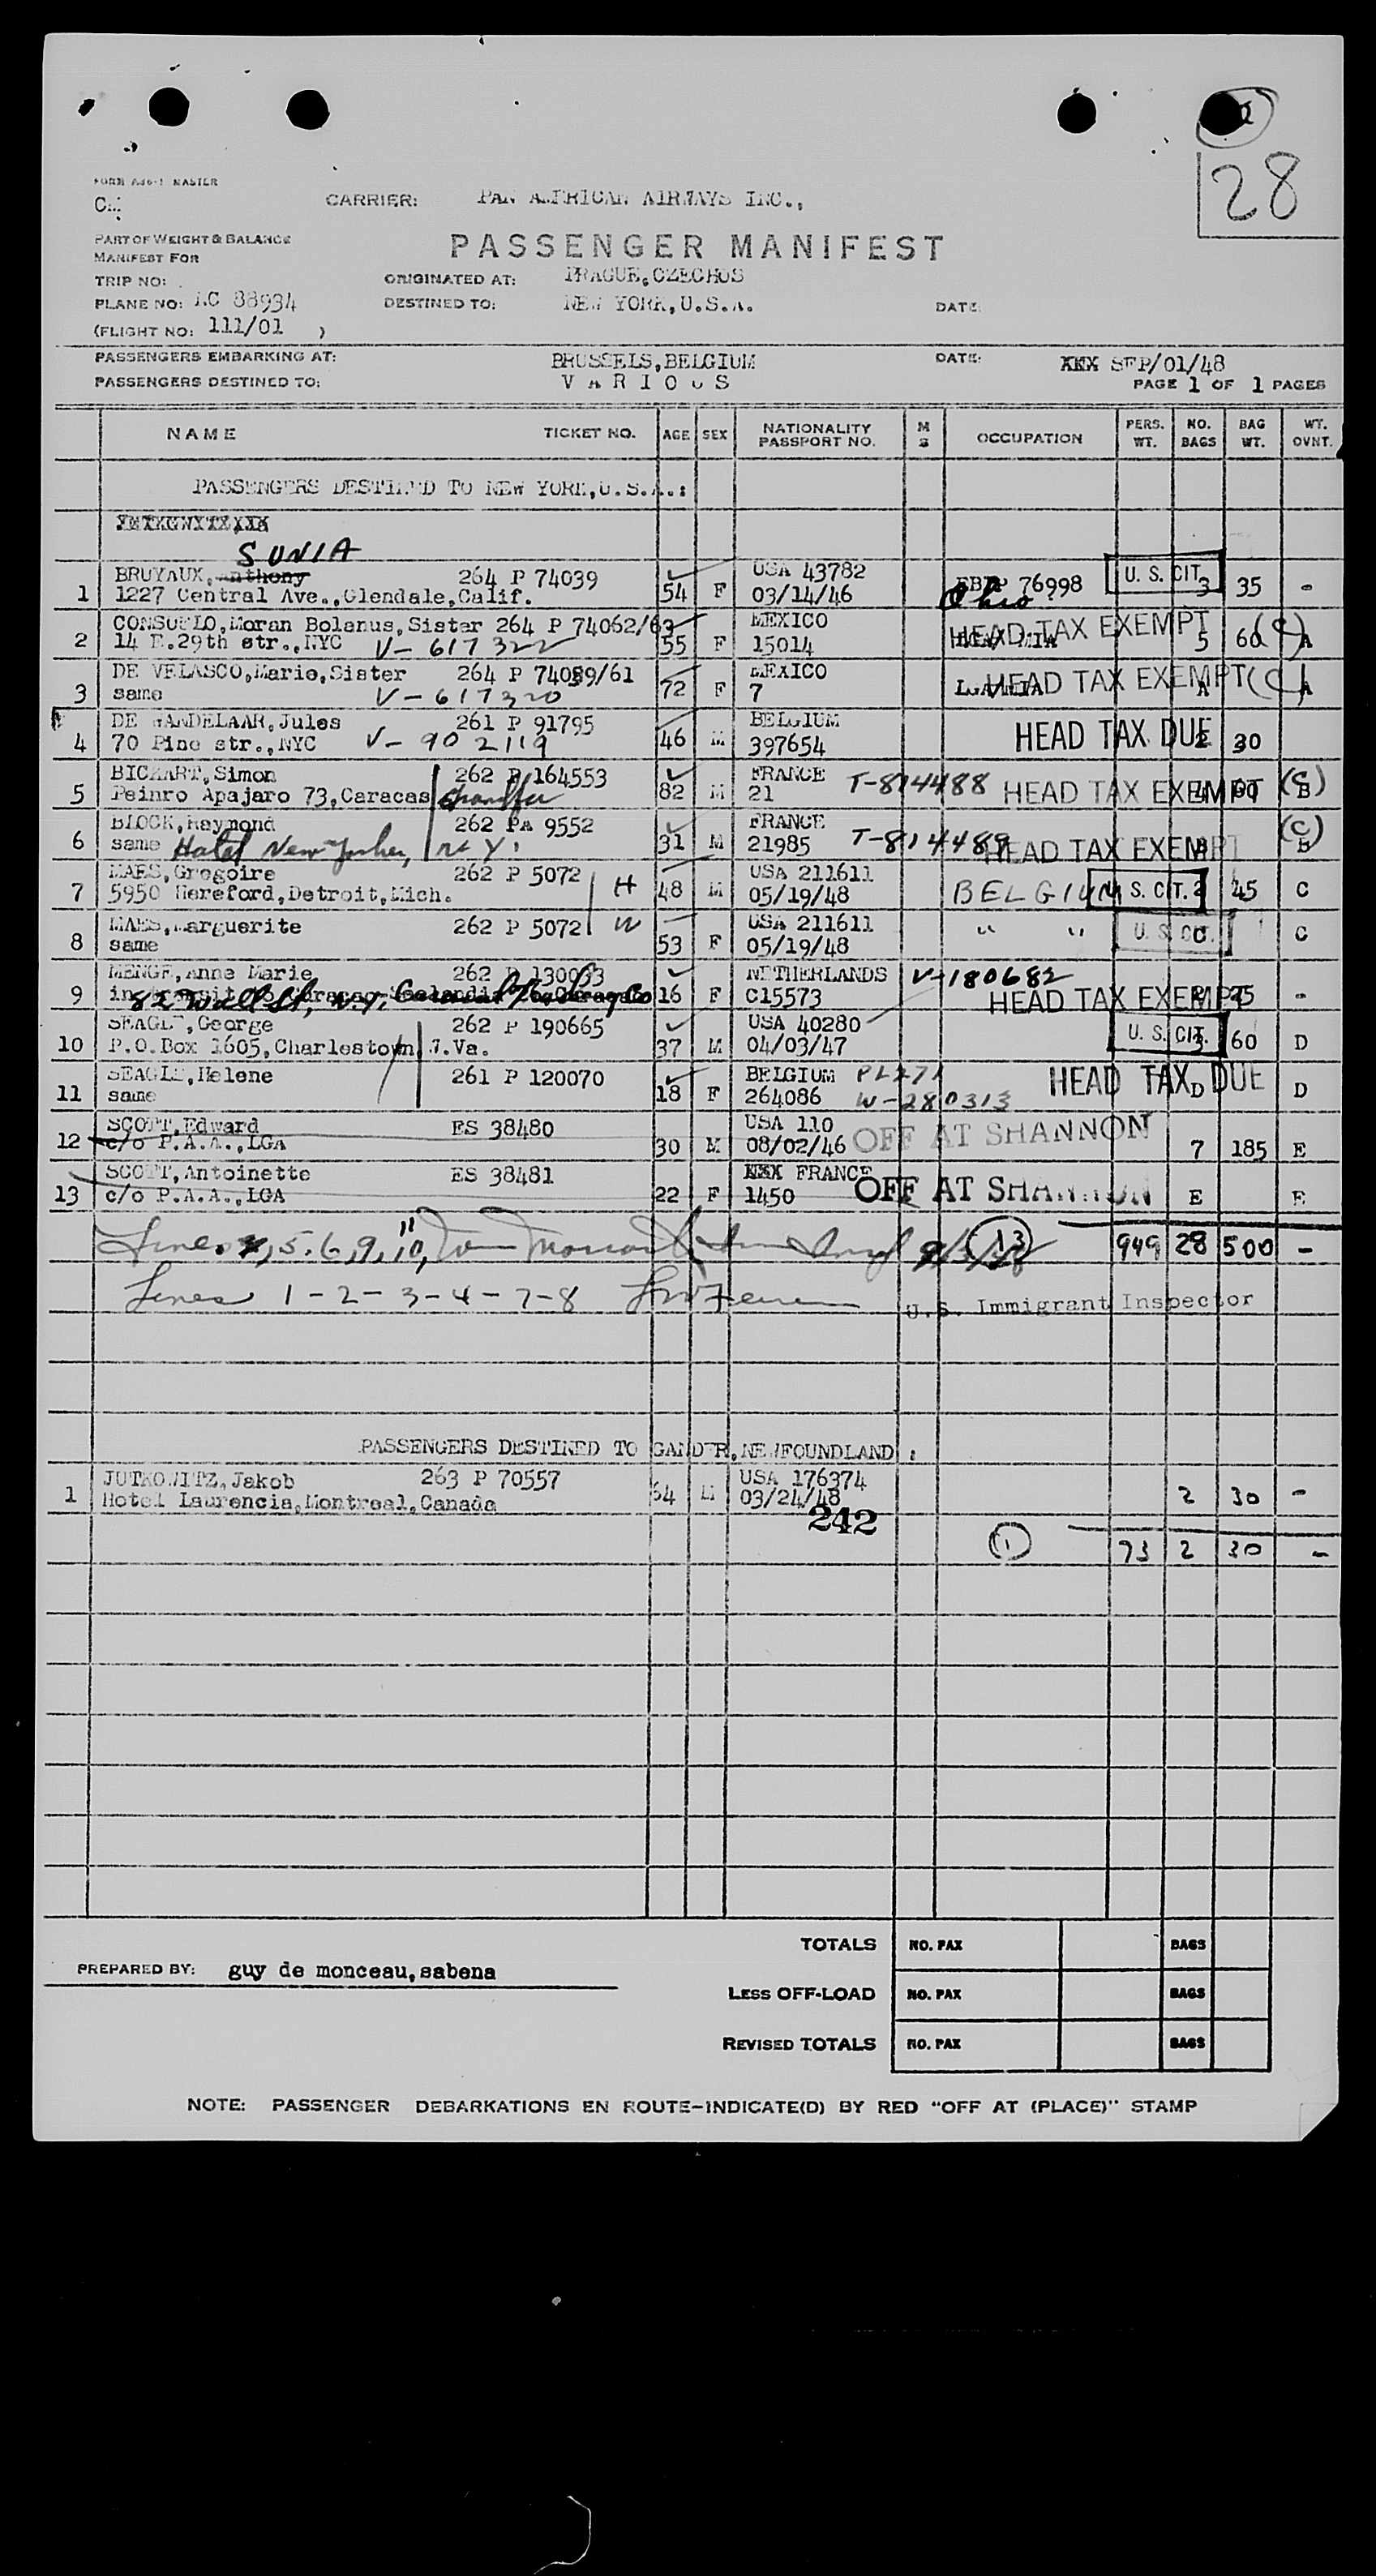 28
FORM MASTER
CARRIER: PAN AMERICAN AIRWAYS INC.,
PART OF WEIGHT & BALANCE
MANIFEST FOR
PASSENGER MANIFEST
TRIP NO:
ORIGINATED AT: PRAGUE,CZECHOS
PLANE NO: NC 88934
DESTINED TO: NEW YORK,U.S.A.
DATE:
(FLIGHT NO: 111/01 )
PASSENGERS EMBARKING AT: BRUSSELS,BELGIUM DATE: XXX SEP/01/48
PASSENGERS DESTINED TO: V A R I O U S PAGE 1 OF 1 PAGES
NAME TICKET NO. AGE SEX NATIONALITY PASSPORT NO. M S OCCUPATION PERS. WT. NO. BAGS BAG WT. WT. OVNT.
PASSENGERS DESTINED TO NEW YORK,U.S.A.:
SUNIA
BRUYAUX,Anthony 264 P 74039 USA 43782 76998 U. S. CIT.
1 1227 Central Ave.,Glendale,Calif. 54 F 03/14/46 Ohio 3 35 -
CONSUELO,Moran Bolanus,Sister 264 P 74062/63 MEXICO HEAD TAX EXEMPT (C)
2 14 E.29th str.,NYC V-617322 55 F 15014 5 60 A
DE VELASCO,Marie,Sister 264 P 74059/61 MEXICO HEAD TAX EXEMPT (C)
3 same V-617320 72 F 7 A A
DE WANDELAAR,Jules 261 P 91795 BELGIUM HEAD TAX DUE
4 70 Pine str.,NYC V-902119 46 M 397654 2 30
BICKART,Simon 262 P 164553 FRANCE T-814488 HEAD TAX EXEMPT (C)
5 Peinro Apajaro 73,Caracas 82 M 21 B
BLOCK,Raymond 262 PA 9552 FRANCE T-814489 HEAD TAX EXEMPT (C)
6 same Hotel New Yorker, N.Y. 31 M 21985 B
MAES,Gregoire 262 P 5072 H USA 211611
7 5950 Hereford,Detroit,Mich. 48 M 05/19/48 BELGIUM U. S. CIT. 2 45 C
MAES,Marguerite 262 P 5072 W USA 211611 " " U. S. CIT.
8 same 53 F 05/19/48 C C
MENGE,Anne Marie 262 P 130033 NETHERLANDS V-180682
9 82 Wall St, N.Y. 16 F C15573 HEAD TAX EXEMPT 25 -
SEAGLE,George 262 P 190665 USA 40280 U. S. CIT.
10 P.O.Box 1605,Charlestown,W.Va. 37 M 04/03/47 3 60 D
SEAGLE,Helene 261 P 120070 BELGIUM HEAD TAX DUE
11 same 18 F 264086 W-280313 D D
SCOTT,Edward ES 38480 USA 110 OFF AT SHANNON
12 c/o P.A.A.,LGA 30 M 08/02/46 7 185 E
SCOTT,Antoinette ES 38481 XXX FRANCE OFF AT SHANNON
13 c/o P.A.A.,LGA 22 F 1450 E E
Lines 5, 6, 9, 10, 11 13 949 28 500 -
Lines 1-2-3-4-7-8 U.S. Immigrant Inspector
PASSENGERS DESTINED TO GANDER,NEWFOUNDLAND :
JUTKOWITZ,Jakob 263 P 70557 USA 176374
1 Hotel Laurencia,Montreal,Canada 64 M 03/24/48 2 30 -
242
1 73 2 30 -
TOTALS NO. PAX BAGS
PREPARED BY: guy de monceau,sabena
LESS OFF-LOAD NO. PAX BAGS
REVISED TOTALS NO. PAX BAGS
NOTE: PASSENGER DEBARKATIONS EN ROUTE-INDICATE(D) BY RED "OFF AT (PLACE)" STAMP